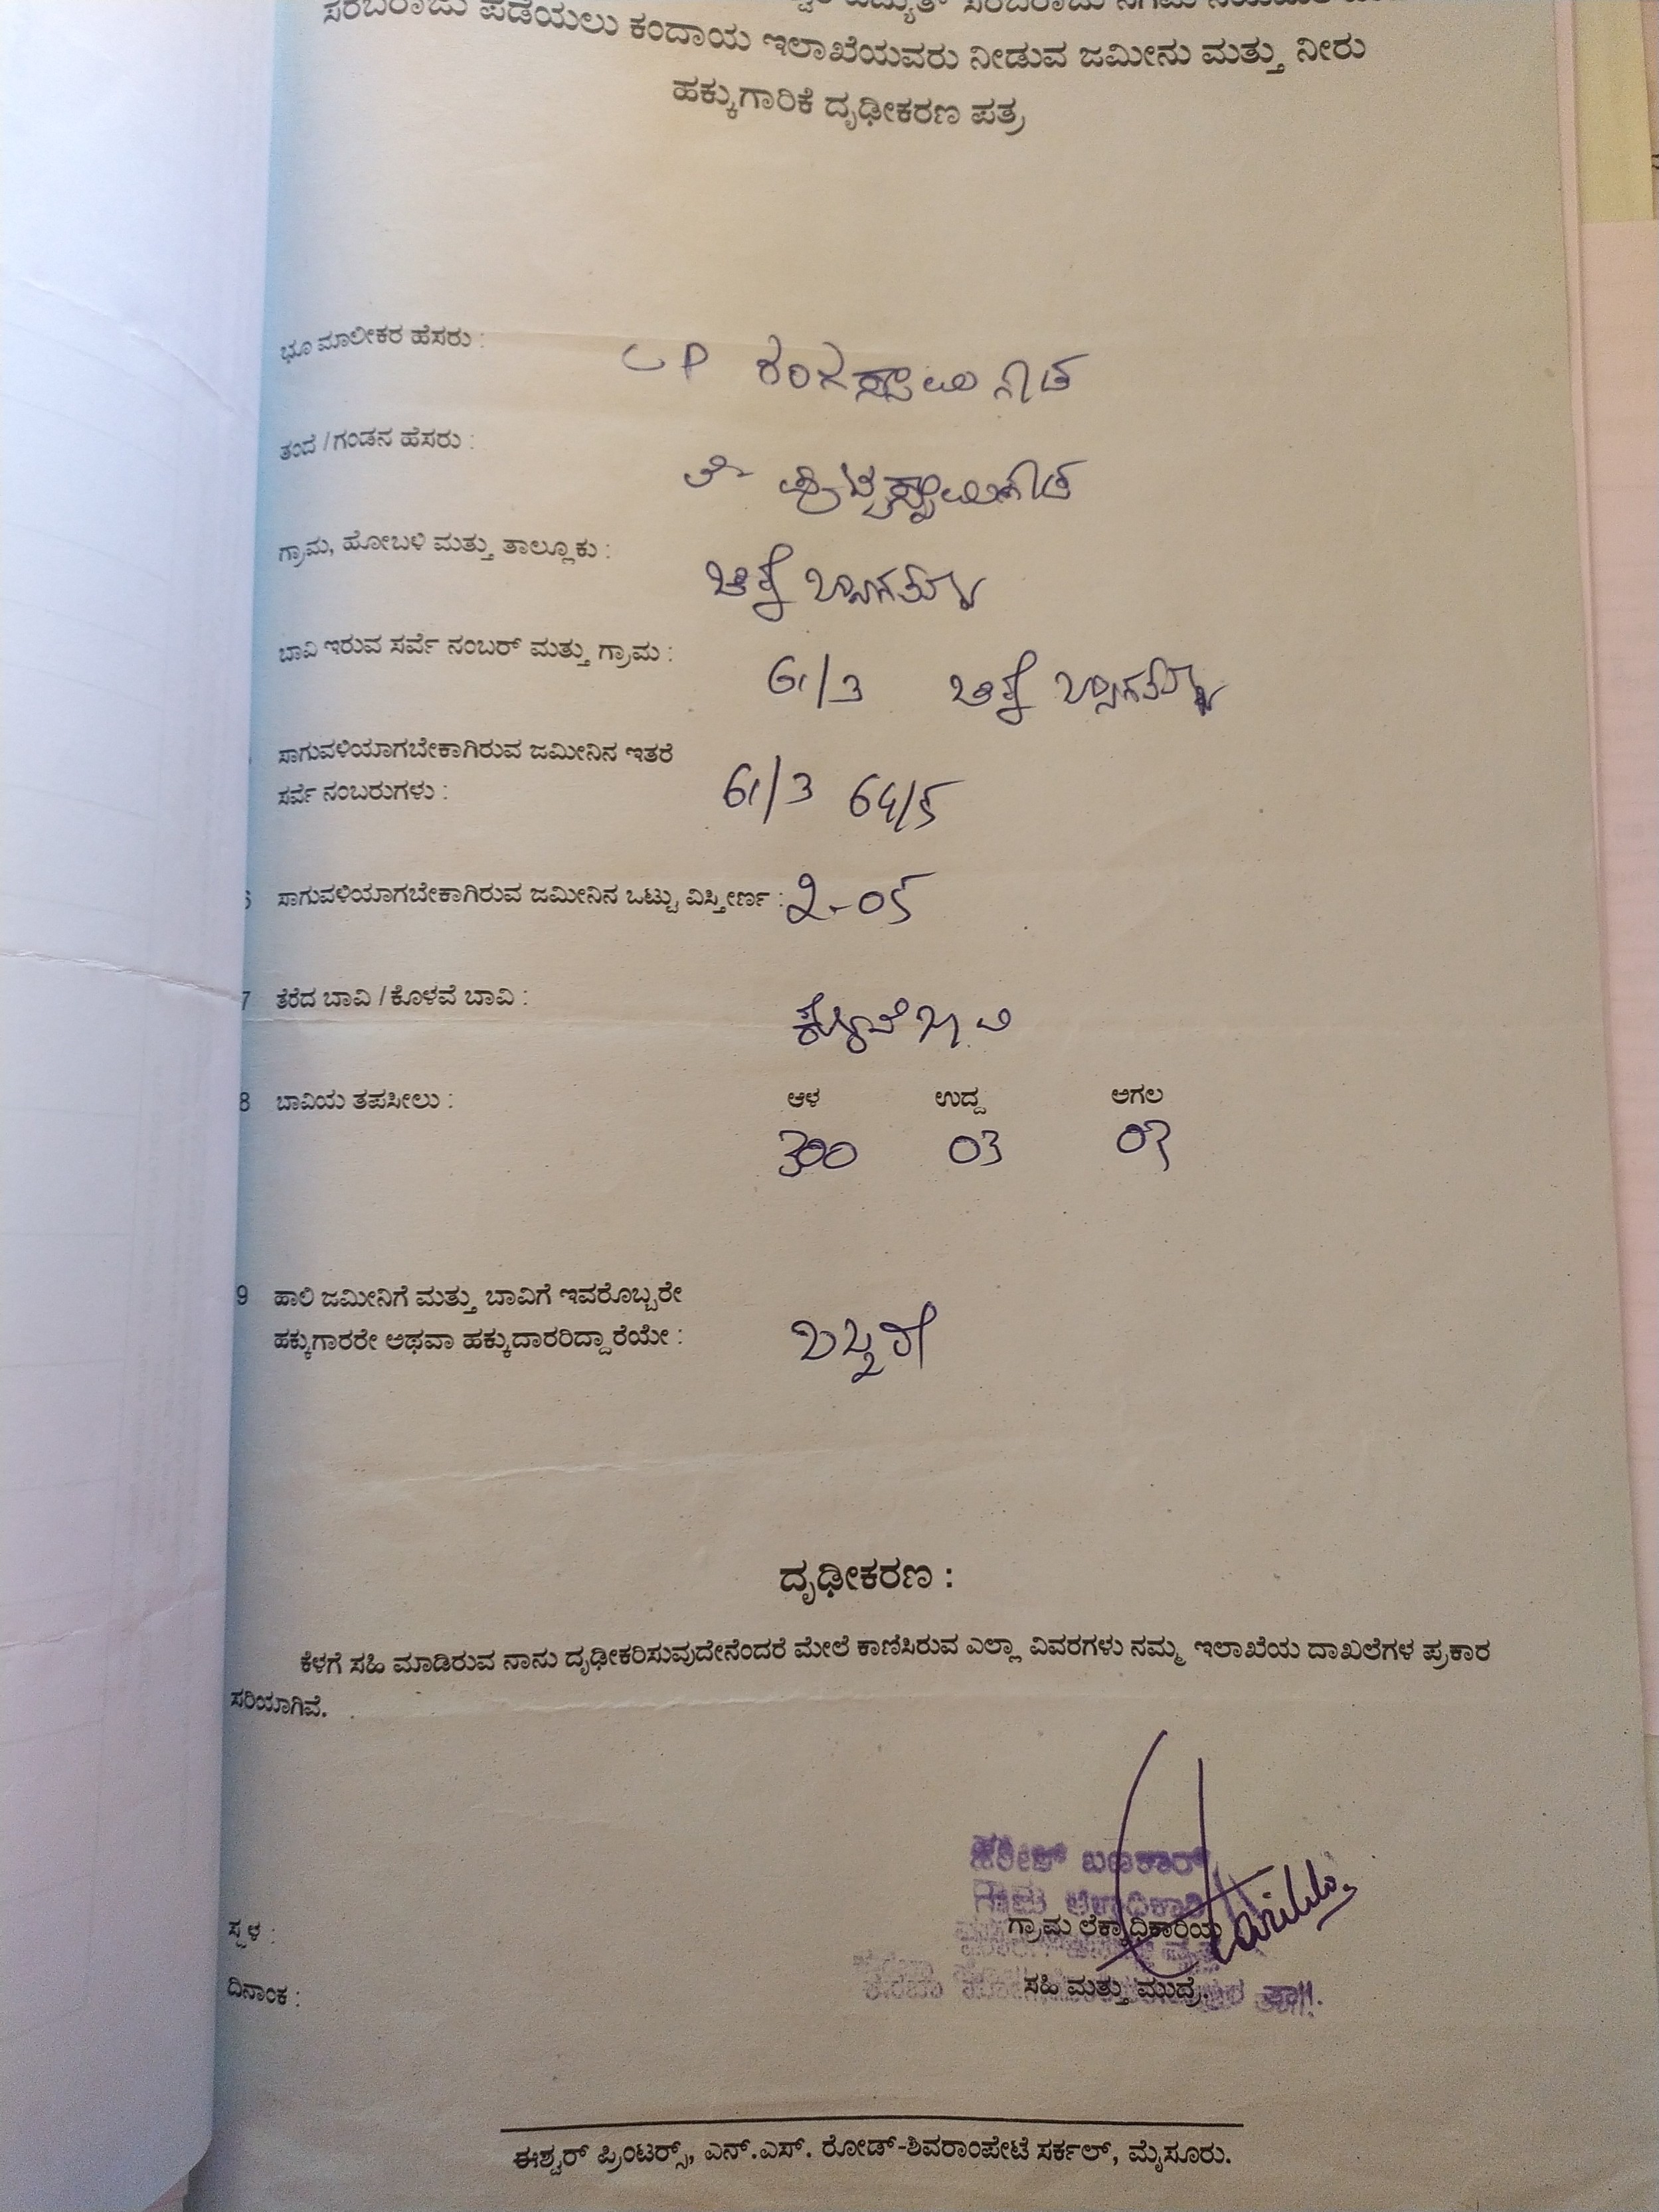 ಸರಬರಾಜು ಪಡೆಯಲು ಕಂದಾಯ ಇಲಾಖೆಯವರು ನೀಡುವ ಜಮೀನು ಮತ್ತು ನೀರು
ಹಕ್ಕುಗಾರಿಕೆ ದೃಢೀಕರಣ ಪತ್ರ
ಭೂ ಮಾಲೀಕರ ಹೆಸರು : CP ರಂಗಸ್ವಾಮಿ ಗೌಡ
ತಂದೆ /ಗಂಡನ ಹೆಸರು :
ಗ್ರಾಮ, ಹೋಬಳಿ ಮತ್ತು ತಾಲ್ಲೂಕು :
ಬಾವಿ ಇರುವ ಸರ್ವೆ ನಂಬರ್ ಮತ್ತು ಗ್ರಾಮ : 61/3
ಸಾಗುವಳಿಯಾಗಬೇಕಾಗಿರುವ ಜಮೀನಿನ ಇತರೆ
ಸರ್ವೆ ನಂಬರುಗಳು : 61/3 64/5
ಸಾಗುವಳಿಯಾಗಬೇಕಾಗಿರುವ ಜಮೀನಿನ ಒಟ್ಟು ವಿಸ್ತೀರ್ಣ : 2-05
7 ತೆರೆದ ಬಾವಿ / ಕೊಳವೆ ಬಾವಿ : ಕೊಳವೆ ಬಾವಿ
8 ಬಾವಿಯ ತಪಸೀಲು : ಆಳ ಉದ್ದ ಅಗಲ
300 03 03
9 ಹಾಲಿ ಜಮೀನಿಗೆ ಮತ್ತು ಬಾವಿಗೆ ಇವರೊಬ್ಬರೇ
ಹಕ್ಕುಗಾರರೇ ಅಥವಾ ಹಕ್ಕುದಾರರಿದ್ದಾರೆಯೇ : ಒಬ್ಬರೇ
ದೃಢೀಕರಣ :
ಕೆಳಗೆ ಸಹಿ ಮಾಡಿರುವ ನಾನು ದೃಢೀಕರಿಸುವುದೇನೆಂದರೆ ಮೇಲೆ ಕಾಣಿಸಿರುವ ಎಲ್ಲಾ ವಿವರಗಳು ನಮ್ಮ ಇಲಾಖೆಯ ದಾಖಲೆಗಳ ಪ್ರಕಾರ
ಸರಿಯಾಗಿವೆ.
ಗ್ರಾಮ ಲೆಕ್ಕಾಧಿಕಾರಿಯ
ಸಹಿ ಮತ್ತು ಮುದ್ರೆ.
ಸ್ಥಳ :
ದಿನಾಂಕ :
ಈಶ್ವರ್ ಪ್ರಿಂಟರ್ಸ್, ಎನ್.ಎಸ್. ರೋಡ್-ಶಿವರಾಂಪೇಟೆ ಸರ್ಕಲ್, ಮೈಸೂರು.